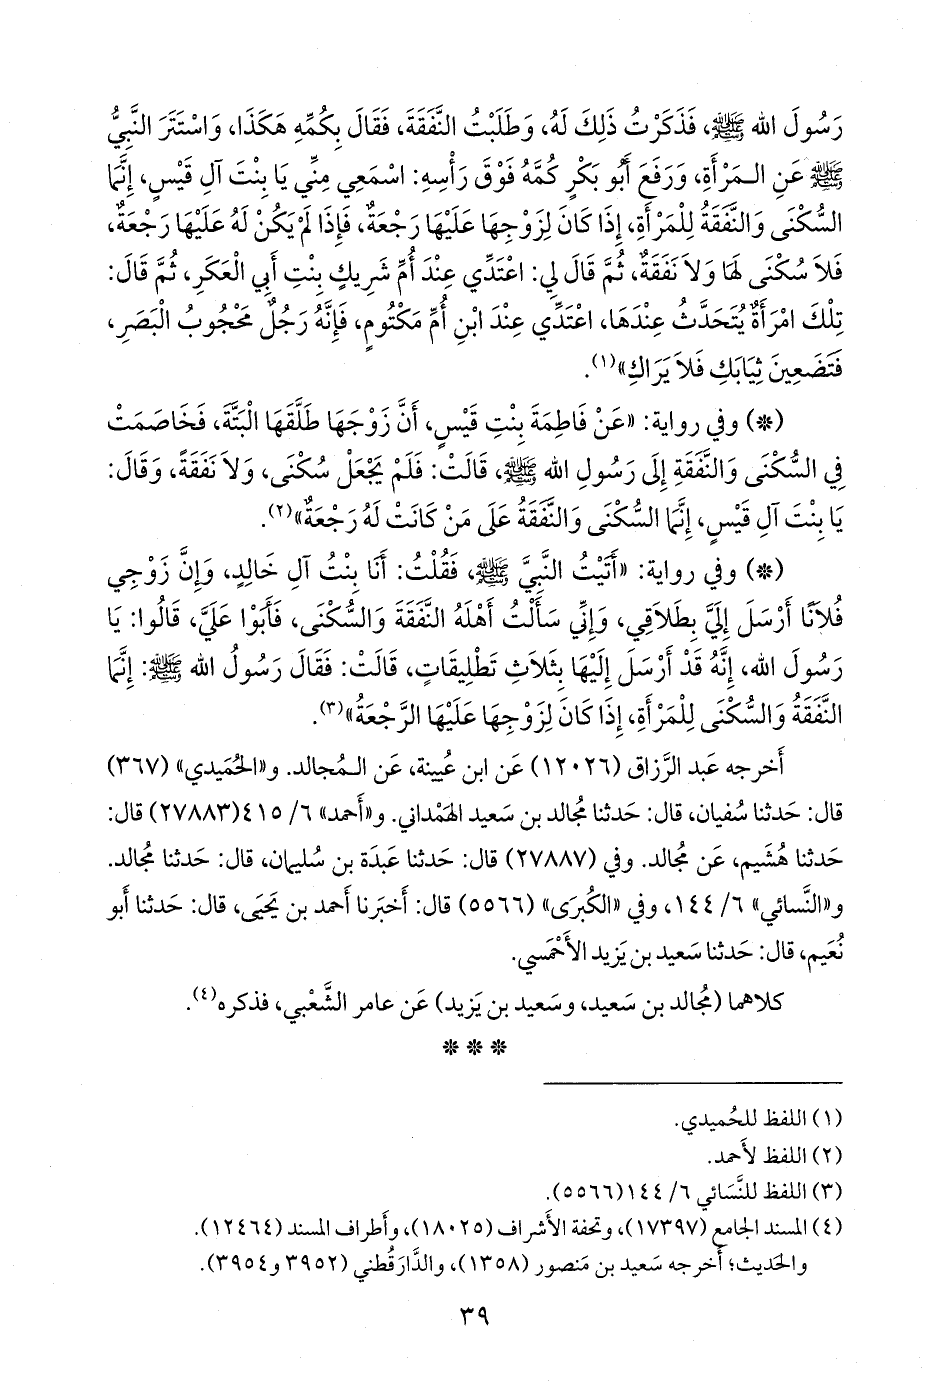 رَسُولَ الله ﷺ، فَذَكَرْتُ ذَلِكَ لَهُ، وَطَلَبْتُ النَّفَقَةَ، فَقَالَ بِكُمِّهِ هَكَذَا، وَاسْتَتَرَ النَّبِيُّ
ﷺ عَنِ الـمَرْأَةِ، وَرَفَعَ أَبُو بَكْرٍ كُمَّهُ فَوْقَ رَأْسِهِ: اسْمَعِي مِنِّي يَا بِنْتَ آلِ قَيْسٍ، إِنَّمَا
السُّكْنَى وَالنَّفَقَةُ لِلْمَرْأَةِ، إِذَا كَانَ لِزَوْجِهَا عَلَيْهَا رَجْعَةٌ، فَإِذَا لَمْ يَكُنْ لَهُ عَلَيْهَا رَجْعَةٌ،
فَلاَ سُكْنَى لَهَا وَلاَ نَفَقَةٌ، ثُمَّ قَالَ لِي: اعْتَدِّي عِنْدَ أُمِّ شَرِيكٍ بِنْتِ أَبِي الْعَكَرِ، ثُمَّ قَالَ:
تِلْكَ امْرَأَةٌ يُتَحَدَّثُ عِنْدَهَا، اعْتَدِّي عِنْدَ ابْنِ أُمِّ مَكْتُومٍ، فَإِنَّهُ رَجُلٌ مَحْجُوبُ الْبَصَرِ،
فَتَضَعِينَ ثِيَابَكِ فَلاَ يَرَاكِ»(١).
(*) وفي رواية: «عَنْ فَاطِمَةَ بِنْتِ قَيْسٍ، أَنَّ زَوْجَهَا طَلَّقَهَا الْبَتَّةَ، فَخَاصَمَتْ
فِي السُّكْنَى وَالنَّفَقَةِ إِلَى رَسُولِ الله ﷺ، قَالَتْ: فَلَمْ يَجْعَلْ سُكْنَى، وَلاَ نَفَقَةً، وَقَالَ:
يَا بِنْتَ آلِ قَيْسٍ، إِنَّمَا السُّكْنَى وَالنَّفَقَةُ عَلَى مَنْ كَانَتْ لَهُ رَجْعَةٌ»(٢).
(*) وفي رواية: «أَتَيْتُ النَّبِيَّ ﷺ، فَقُلْتُ: أَنَا بِنْتُ آلِ خَالِدٍ، وَإِنَّ زَوْجِي
فُلاَنًا أَرْسَلَ إِلَيَّ بِطَلاَقِي، وَإِنِّي سَأَلْتُ أَهْلَهُ النَّفَقَةَ وَالسُّكْنَى، فَأَبَوْا عَلَيَّ، قَالُوا: يَا
رَسُولَ الله، إِنَّهُ قَدْ أَرْسَلَ إِلَيْهَا بِثَلاَثِ تَطْلِيقَاتٍ، قَالَتْ: فَقَالَ رَسُولُ الله ﷺ: إِنَّمَا
النَّفَقَةُ وَالسُّكْنَى لِلْمَرْأَةِ، إِذَا كَانَ لِزَوْجِهَا عَلَيْهَا الرَّجْعَةُ»(٣).
أَخرجه عَبد الرَّزاق (١٢٠٢٦) عَن ابن عُيينة، عَن الـمُجالد. و«الحُميدي» (٣٦٧)
قال: حَدثنا سُفيان، قال: حَدثنا مُجالد بن سَعيد الهَمْداني. و«أَحمد» ٦/ ٤١٥(٢٧٨٨٣) قال:
حَدثنا هُشَيم، عَن مُجالد. وفي (٢٧٨٨٧) قال: حَدثنا عَبدَة بن سُليمان، قال: حَدثنا مُجالد.
و«النَّسائي» ٦/ ١٤٤، وفي «الكُبرَى» (٥٥٦٦) قال: أَخبَرنا أَحمد بن يَحيَى، قال: حَدثنا أَبو
نُعَيم، قال: حَدثنا سَعيد بن يَزيد الأَحْمَسي.
كلاهما (مُجالد بن سَعيد، وسَعيد بن يَزيد) عَن عامر الشَّعْبي، فذكره(٤).
* * *
(١) اللفظ للحُميدي.
(٢) اللفظ لأَحمد.
(٣) اللفظ للنَّسَائي ٦/ ١٤٤(٥٥٦٦).
(٤) المسند الجامع (١٧٣٩٧)، وتحفة الأَشراف (١٨٠٢٥)، وأَطراف المسند (١٢٤٦٤).
والحَديث؛ أَخرجه سَعيد بن مَنصور (١٣٥٨)، والدَّارَقُطني (٣٩٥٢ و٣٩٥٤).
٣٩